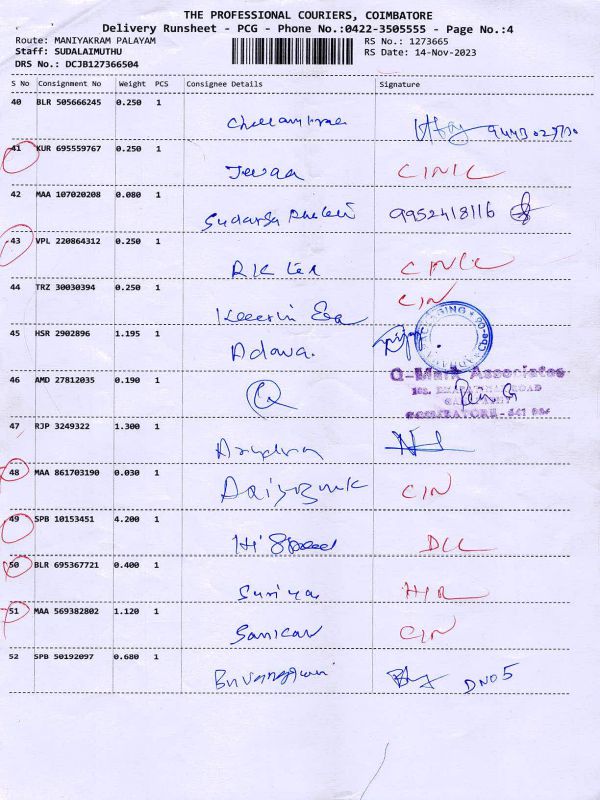 THE PROFESSIONAL COURIERS, COIMBATORE
Delivery Runsheet - PCG - Phone No.:0422-3505555 - Page No.:4
Route: MANIYAKRAM PALAYAM RS No.: 1273665
Staff: SUDALAIMUTHU RS Date: 14-Nov-2023
DRS No.: DCJB127366504
S No Consignment No Weight PCS Consignee Details Signature
40 BLR 505666245 0.250 1
41 KUR 695559767 0.250 1 Jewaa
42 MAA 107020208 0.080 1 9952418116
43 VPL 220864312 0.250 1
44 TRZ 30030394 0.250 1 CIN
45 HSR 2902896 1.195 1 Adowa.
46 AMD 27812035 0.190 1 Q
Q-Mark Associates
COIMBATORE - 641
47 RJP 3249322 1.300 1
48 MAA 861703190 0.030 1 CIN
49 SPB 10153451 4.200 1 Hi Speed DCL
50 BLR 695367721 0.400 1 Suriya
51 MAA 569382802 1.120 1 Sanicav CIN
52 SPB 50192097 0.680 1 DNO5